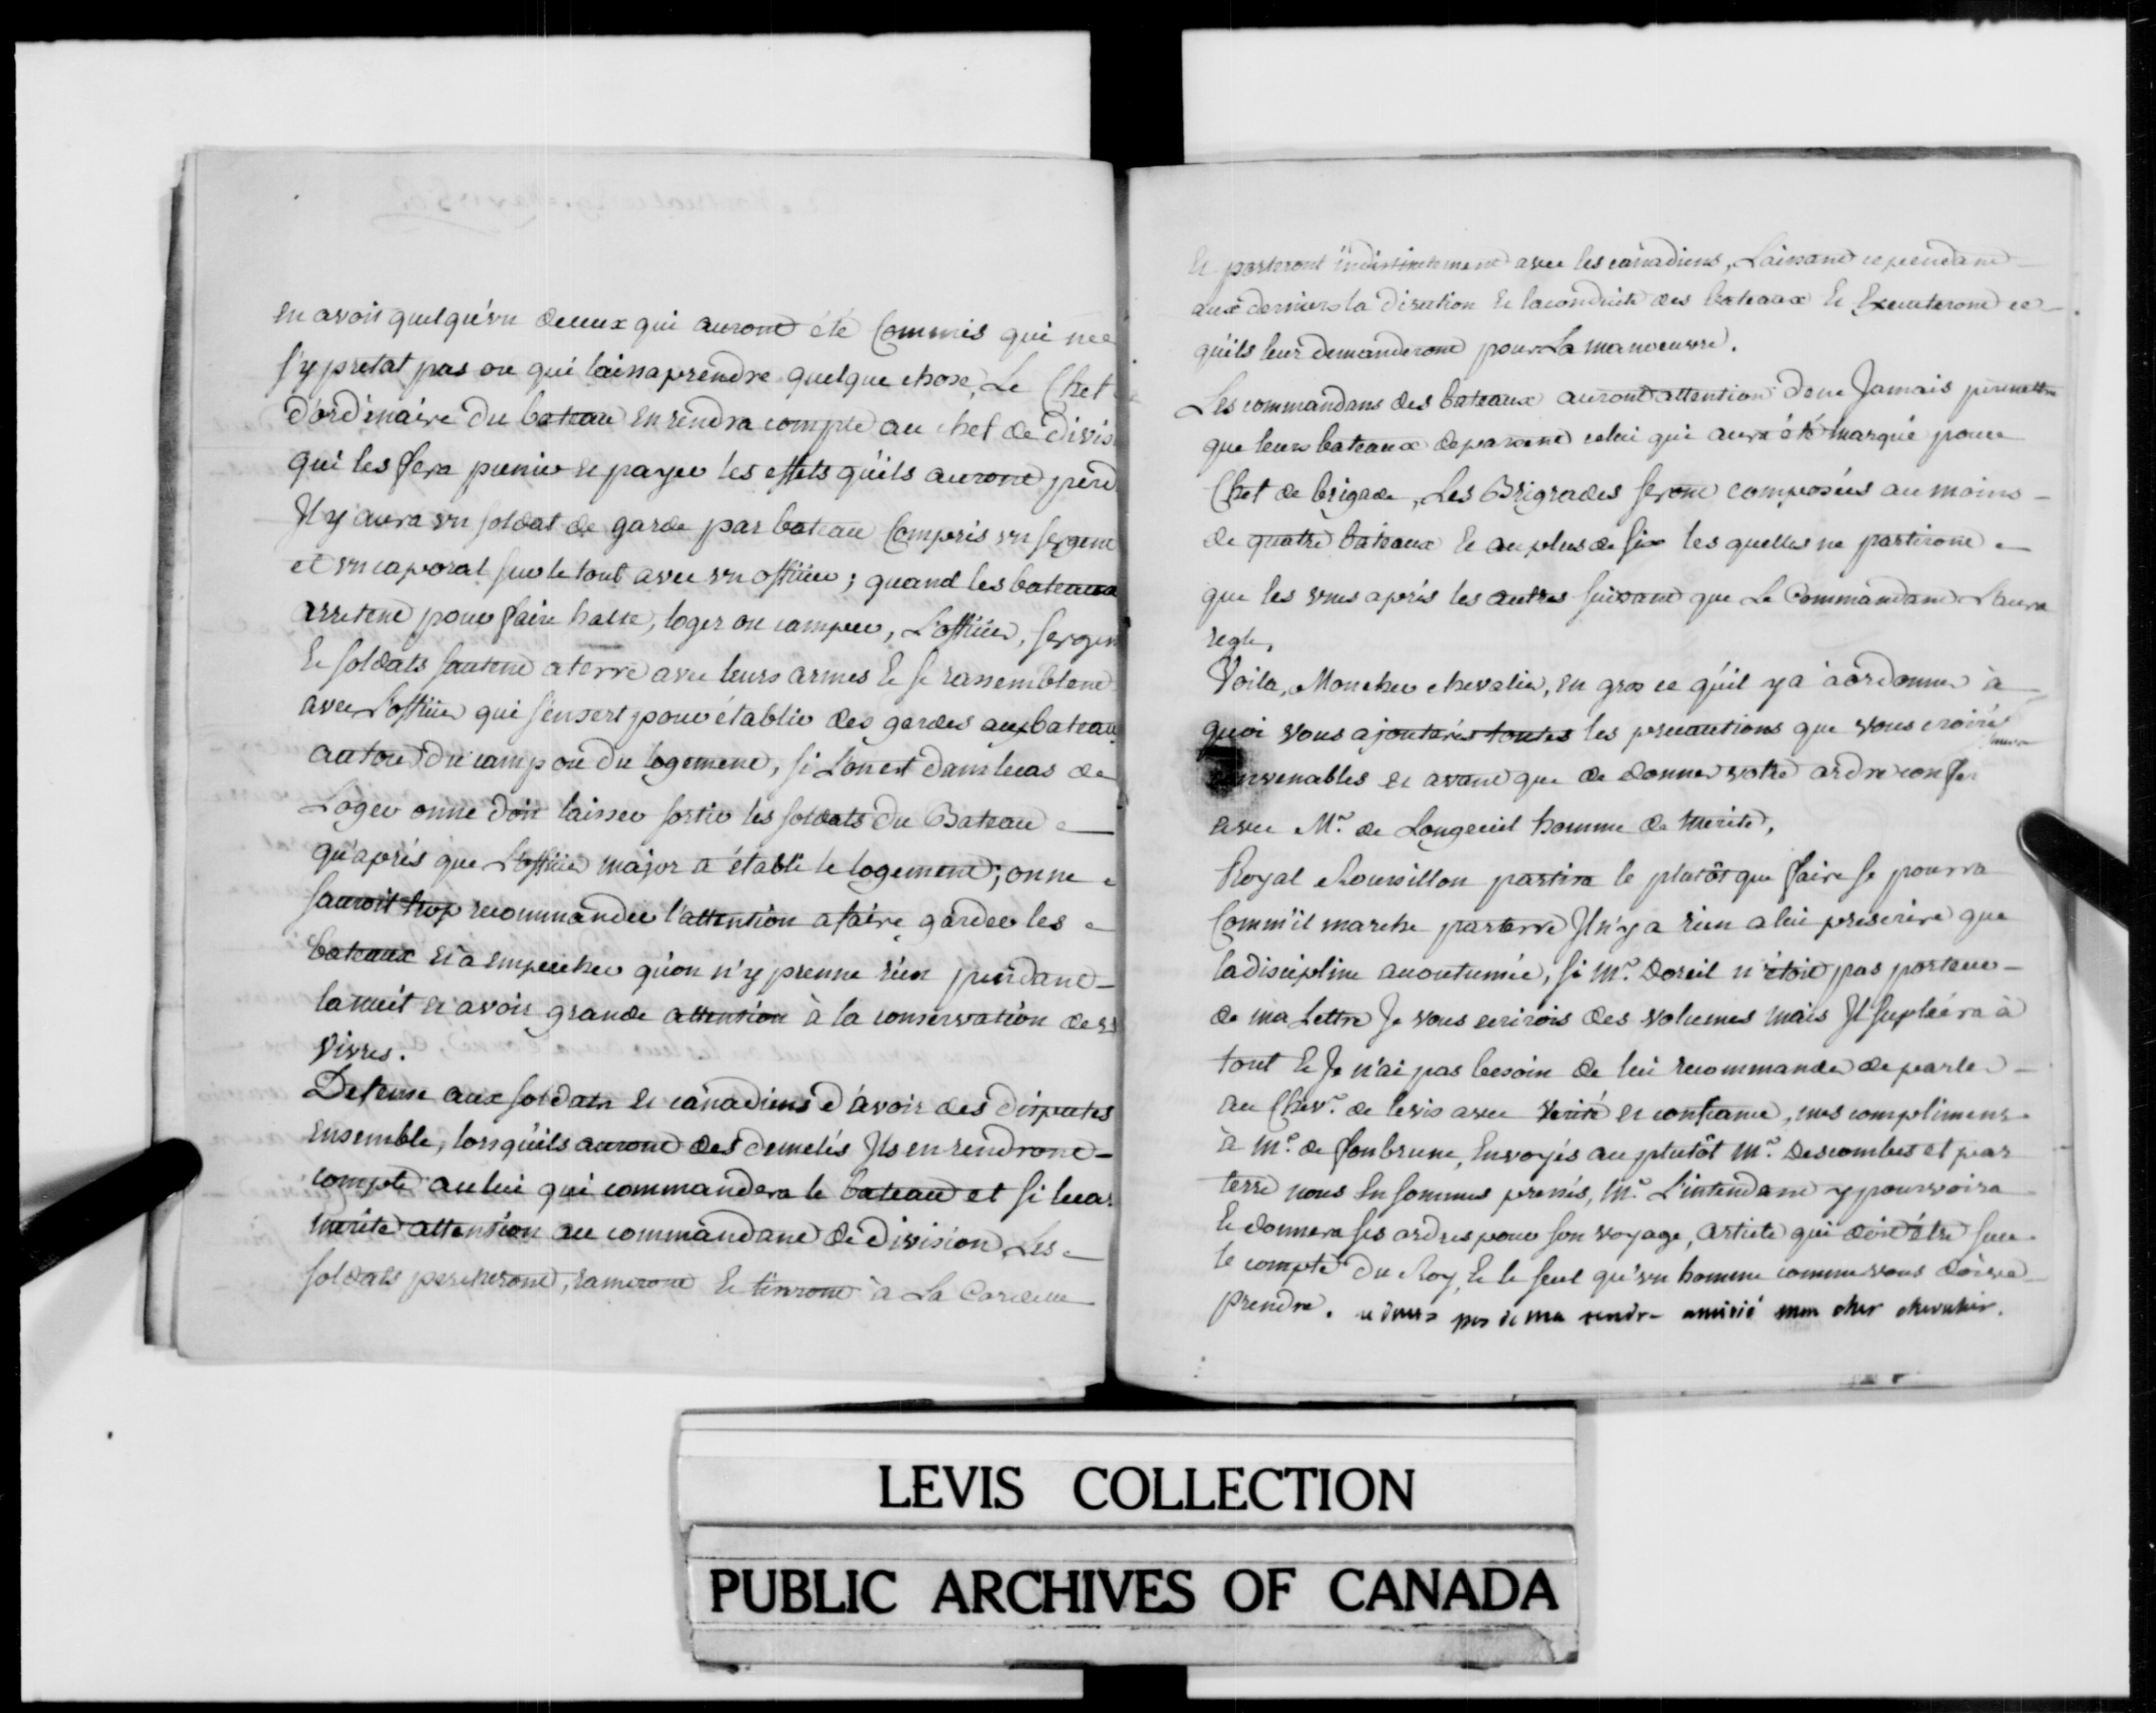 en avoit quelqu'vn deceux qui auront été Commis qui ne
s'y pretat pas ou qui laissa prendre quelque chose, Le Chef
d'ordinaire du bateau en rendra compte au chef de divis
qui les fera punir et payer les effets qu'ils auront perd
Il y aura vn soldat de garde par bateau Compris vn sergent
et vn caporal sur le tout avec vn officier; quand les bateaux
arretent pour faire halte, loger ou camper, L'officier, sergen
et soldats sautent a terre avec leurs armes et se rassemblent
avec L'officier qui s'en sert pour établir des gardes aux bateau
autour du camp ou du logement, si Lon est dans lecas de
Loger onne doit laisser sortir les soldats du Bateau
qu'aprés que L'officier major a établi le logement; onne
sauroit trop recommander l'attention a faire garder les
bateaux et a empecher qu'on n'y prenne rien pendant
la nuit et avoir grande attention à la conservation des
vivres.
Defense aux soldats et canadiens d'avoir des disputes
ensemble, lorsqu'ils auront des demelés Ils en rendront
compte aului qui commandera le bateau et si lecas
merite attention au commandant de division, Les
soldats percheront, rameront et tireront à La Cordelle
et porteront indistinctement avec les canadiens, Laissant cependant
aux derniers la direction et laconduite des bateaux et Executeront ce
qu'ils leur demanderont pour La manoeuvre.
Les commandans des bateaux auront attention dene Jamais permettre
que leurs bateaux depassent celui qui aura été marqué pour
Chef de brigade, Les Brigrades seront composées au moins
de quatre bateaux et au plus de six les quelles ne partiront
que les vnes aprés les autres suivant que Le Commandant L'aura
reglé.
Voila, Mon cher chevalier, en gros ce qu'il y a à ordonner à
quoi vous ajouterés toutes les precautions que vous croirés
convenables et avant que de donner votre ordre conferer
avec Mr. de Longeuil homme de merite,
Royal Roussillon partira le plutôt que faire se pourra
Comm'il marche par terre Il n'y a rien a lui prescrire que
la discipline accoutumée, si Mr. Doreil n'étoit pas porteur
de ma Lettre Je vous ecrirois des volumes mais Il supléera à
tout et Je n'ai pas besoin de lui recommander de parler
au Chevr. de levis avec verité et confiance, mes complimens
à Mr. de fonbrune, Envoyés au plutôt Mr. Descombes et par
terre nous en sommes pressés, Mr. L'intendant y pourvoira
et donnera ses ordres pour son voyage, article qui doit être sur
le compte du Roy, et le seul qu'vn homme comme vous doive
prendre. ne doutés pas de ma tendre amitié mon cher chevalier.
LEVIS COLLECTION
PUBLIC ARCHIVES OF CANADA